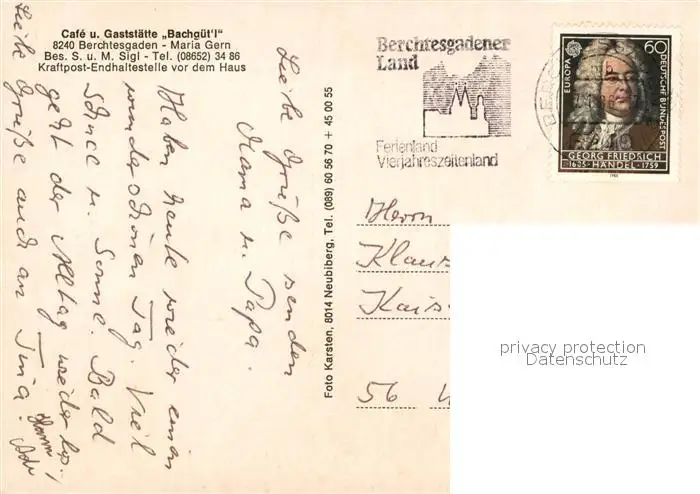 Café u. Gaststätte „Bachgüt'l"
8240 Berchtesgaden - Maria Gern
Bes. S. u. M. Sigl - Tel. (08652) 34 86
Kraftpost-Endhaltestelle vor dem Haus
Haben heute wieder einen
wunderschönen Tag. Viel
Schnee u. Sonne. Bald
geht der Alltag wieder los.
Liebe Grüße auch an Tina!
Liebe Grüße senden
Mama u. Papa.
Liebe
Foto Karsten, 8014 Neubiberg, Tel. (089) 60 56 70 + 45 00 55
Berchtesgadener
Land
Ferienland
Vierjahreszeitenland
60
EUROPA
DEUTSCHE BUNDESPOST
GEORG FRIEDRICH
1685 HÄNDEL 1759
Herrn
Klaus
Kais
56
privacy protection
Datenschutz